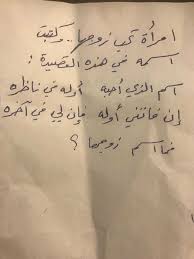 امرأة تحب زوجها .. وكتبت
اسمه في هذه القصيدة :
اسم الذي أحبه أوله في ناظره
إن فاتني أوله فإن لي في آخره
فما اسم زوجها ؟